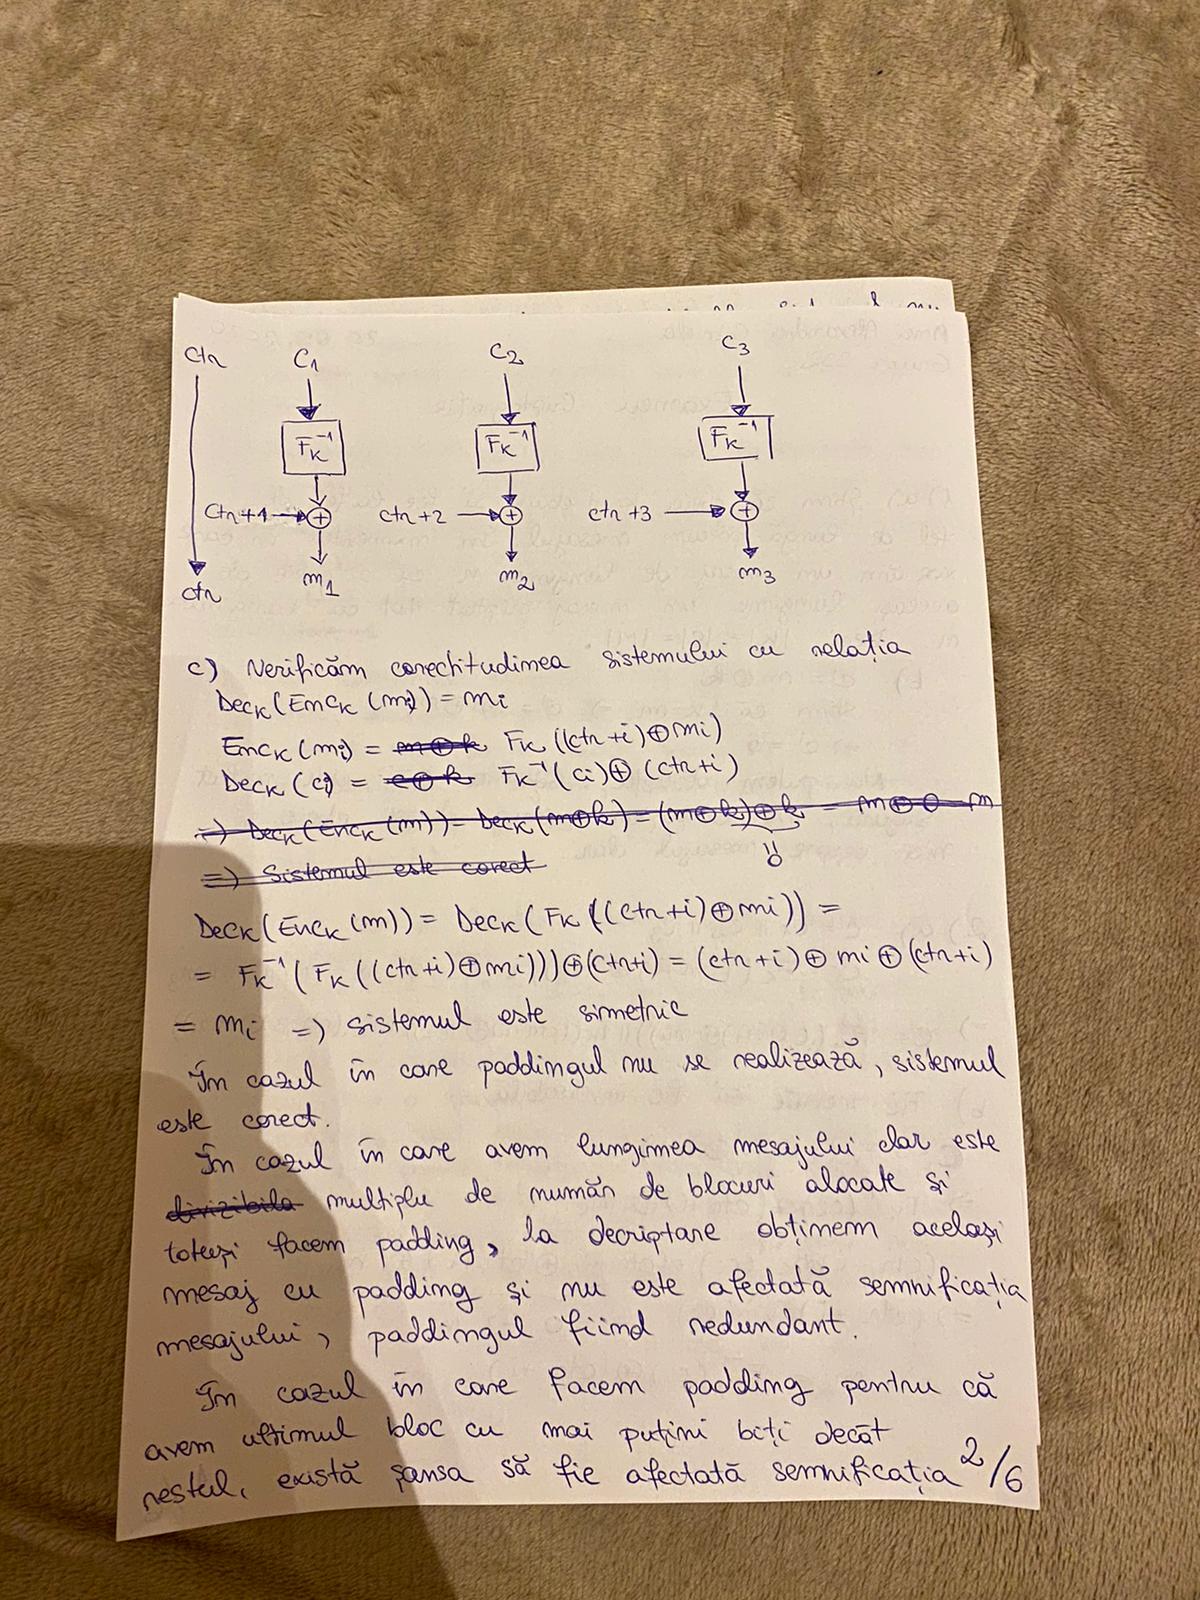 ctr C1 C2 C3
FK⁻¹ FK⁻¹ FK⁻¹
ctr+1 ⊕ ctr+2 ⊕ ctr+3 ⊕
ctr m1 m2 m3
c) Verificăm corectitudimea sistemului cu relația
DecK(EncK(mi)) = mi
EncK(mi) = m⊕k FK((ctr+i)⊕mi)
DecK(ci) = c⊕k FK⁻¹(ci)⊕(ctr+i)
=) DecK(EncK(m)) = DecK(m⊕k) = (m⊕k)⊕k = m⊕0 = m
=) Sistemul este corect
0
DecK(EncK(m)) = DecK(FK((ctr+i)⊕mi)) =
= FK⁻¹(FK((ctr+i)⊕mi)))⊕(ctr+i) = (ctr+i)⊕mi⊕(ctr+i)
= mi =) sistemul este simetric
În cazul în care paddingul nu se realizează, sistemul
este corect.
În cazul în care avem lungimea mesajului dar este
divizibila multiplu de număr de blocuri alocate și
totuși facem padding, la decriptare obținem același
mesaj cu padding și nu este afectată semnificația
mesajului, paddingul fiind redundant.
În cazul în care facem padding pentru că
avem ultimul bloc cu mai puțini biți decât
restul, există șansa să fie afectată semnificația
2/6